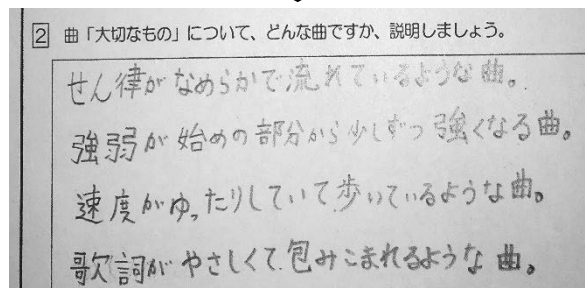 2 曲「大切なもの」について、どんな曲ですか、説明しましょう。
せん律がなめらかで流れているような曲。
強弱が始めの部分から少しずつ強くなる曲。
速度がゆったりしていて歩いているような曲。
歌詞がやさしくて包みこまれるような曲。